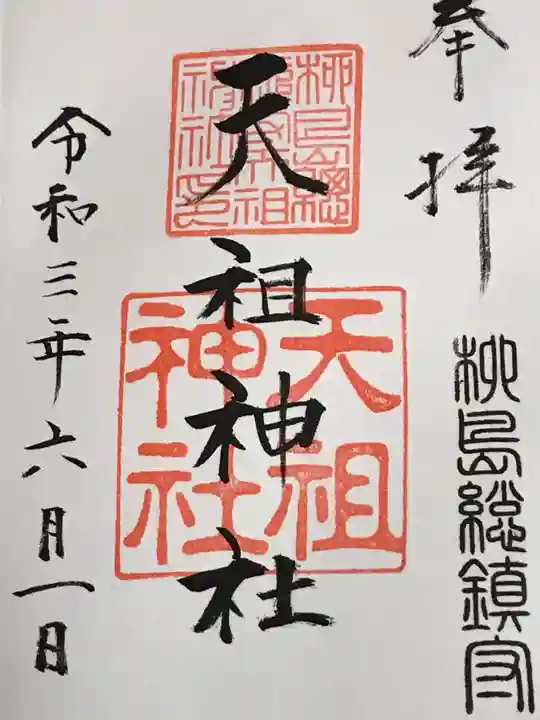 奉拝
柳島総鎮守
天祖神社
柳島總鎮守天祖神社印
天祖神社
令和三年六月一日